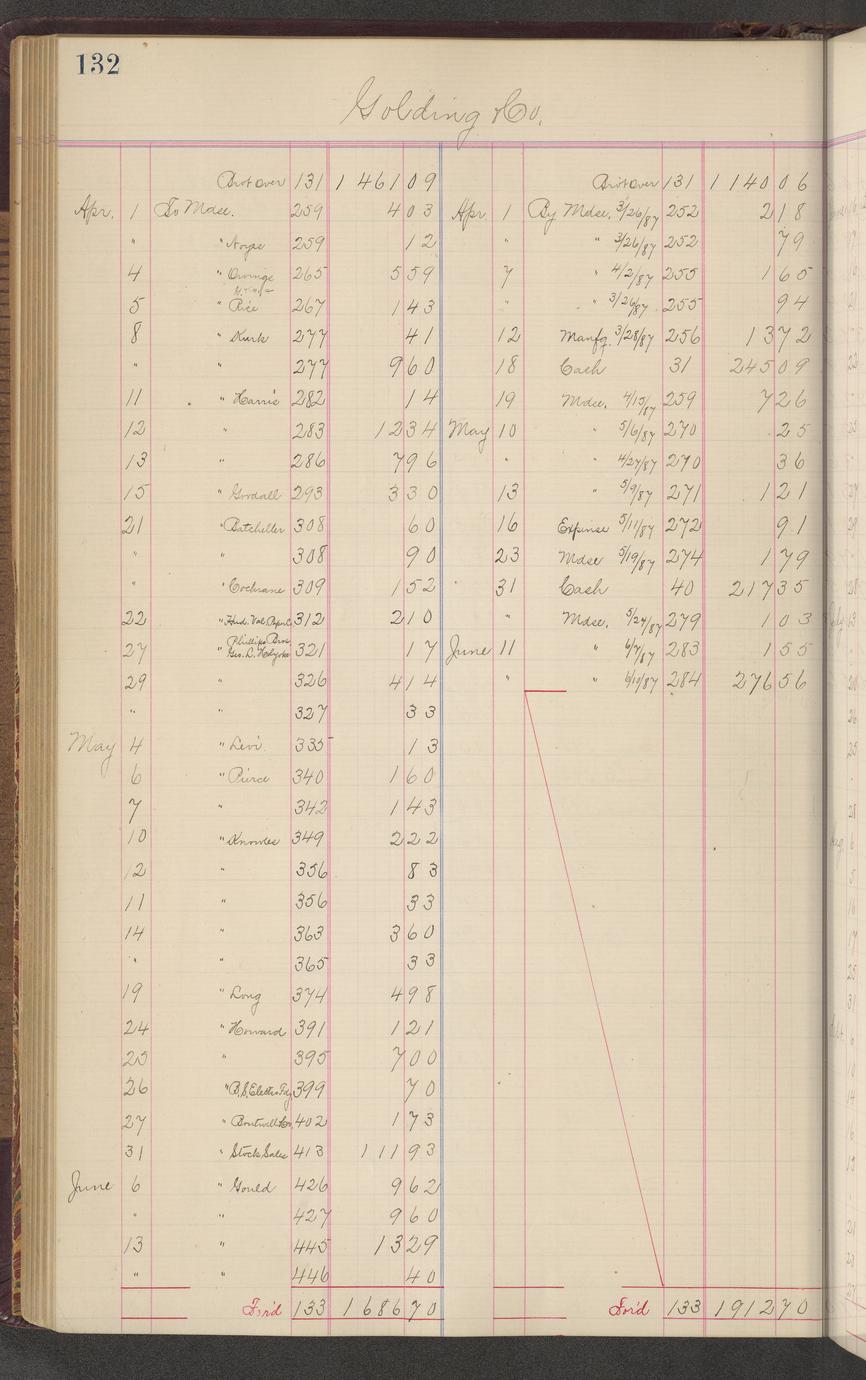 132
Golding & Co.
Brot over 131 1 461 09
Apr. 1 To Mdse. 259 4 03
" " Noyse 259 12
4 " 265 5 59
5 " Price 267 1 43
8 " Kurk 277 41
" " 277 9 60
11 " Harris 282 14
12 " 283 12 34
13 " 286 7 96
15 " Goodall 293 3 30
21 " Batcheller 308 60
" " 308 90
" " Cochrane 309 1 52
22 " Hud. Val. 312 2 10
27 " Phillips Bros. Geo. L. 321 17
29 " 326 4 14
" " 327 33
May 4 " Levi 335 13
6 " Pierce 340 1 60
7 " 342 1 43
10 " Knowles 349 2 22
12 " 356 83
11 " 356 33
14 " 363 3 60
" " 365 33
19 " Long 374 4 98
24 " Howard 391 1 21
25 " 395 7 00
26 " B.S. Electro Fdy 399 70
27 " Boutwell & Co. 402 1 73
31 " Stock Sales 413 111 93
June 6 " Gould 426 9 62
" " 427 9 60
13 " 445 13 29
" " 446 40
For'd 133 1 686 70
Brot over 131 1 140 06
Apr. 1 By Mdse. 3/26/87 252 2 18
" " 3/26/87 252 79
7 " 4/2/87 255 1 65
" " 3/26/87 255 94
12 Manfg. 3/28/87 256 13 72
18 Cash 31 245 09
19 Mdse. 4/15/87 259 7 26
May 10 " 5/6/87 270 25
" " 4/27/87 270 36
13 " 5/9/87 271 1 21
16 Expense 5/11/87 272 91
23 Mdse 5/19/87 274 1 79
31 Cash 40 217 35
" Mdse. 5/27/87 279 1 03
June 11 " 6/7/87 283 1 55
" " 6/10/87 284 276 56
For'd 133 1 912 70